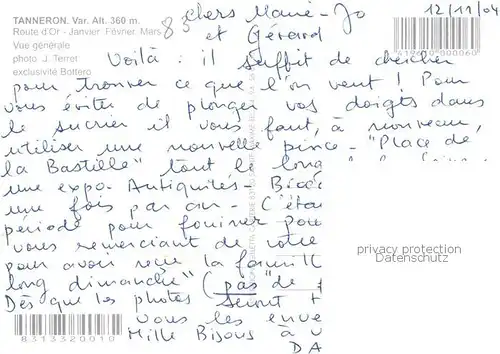 TANNERON. Var. Alt. 360 m.
Route d'Or - Janvier Février, Mars
Vue générale
photo J. Terret
exclusivité Bottero
83
12/11/04
chers Marie-Jo
et Gérard
Voilà : il suffit de chercher
pour trouver ce que l'on veut ! Pour
vous éviter de plonger vos doigts dans
le sucrier il vous faut, à nouveau,
utiliser une nouvelle pince - "Place de
la Bastille" tout le long
une expo- Antiquités- Broc
une fois par an - C'étai
période pour fouiner pou
vous remerciant de votre
pour avoir reçu la famill
long dimanche" (pas "de
Dès que les photos seront
vous les enve
Mille Bisous à v
DA
privacy protection
Datenschutz
8313320010
419610000060